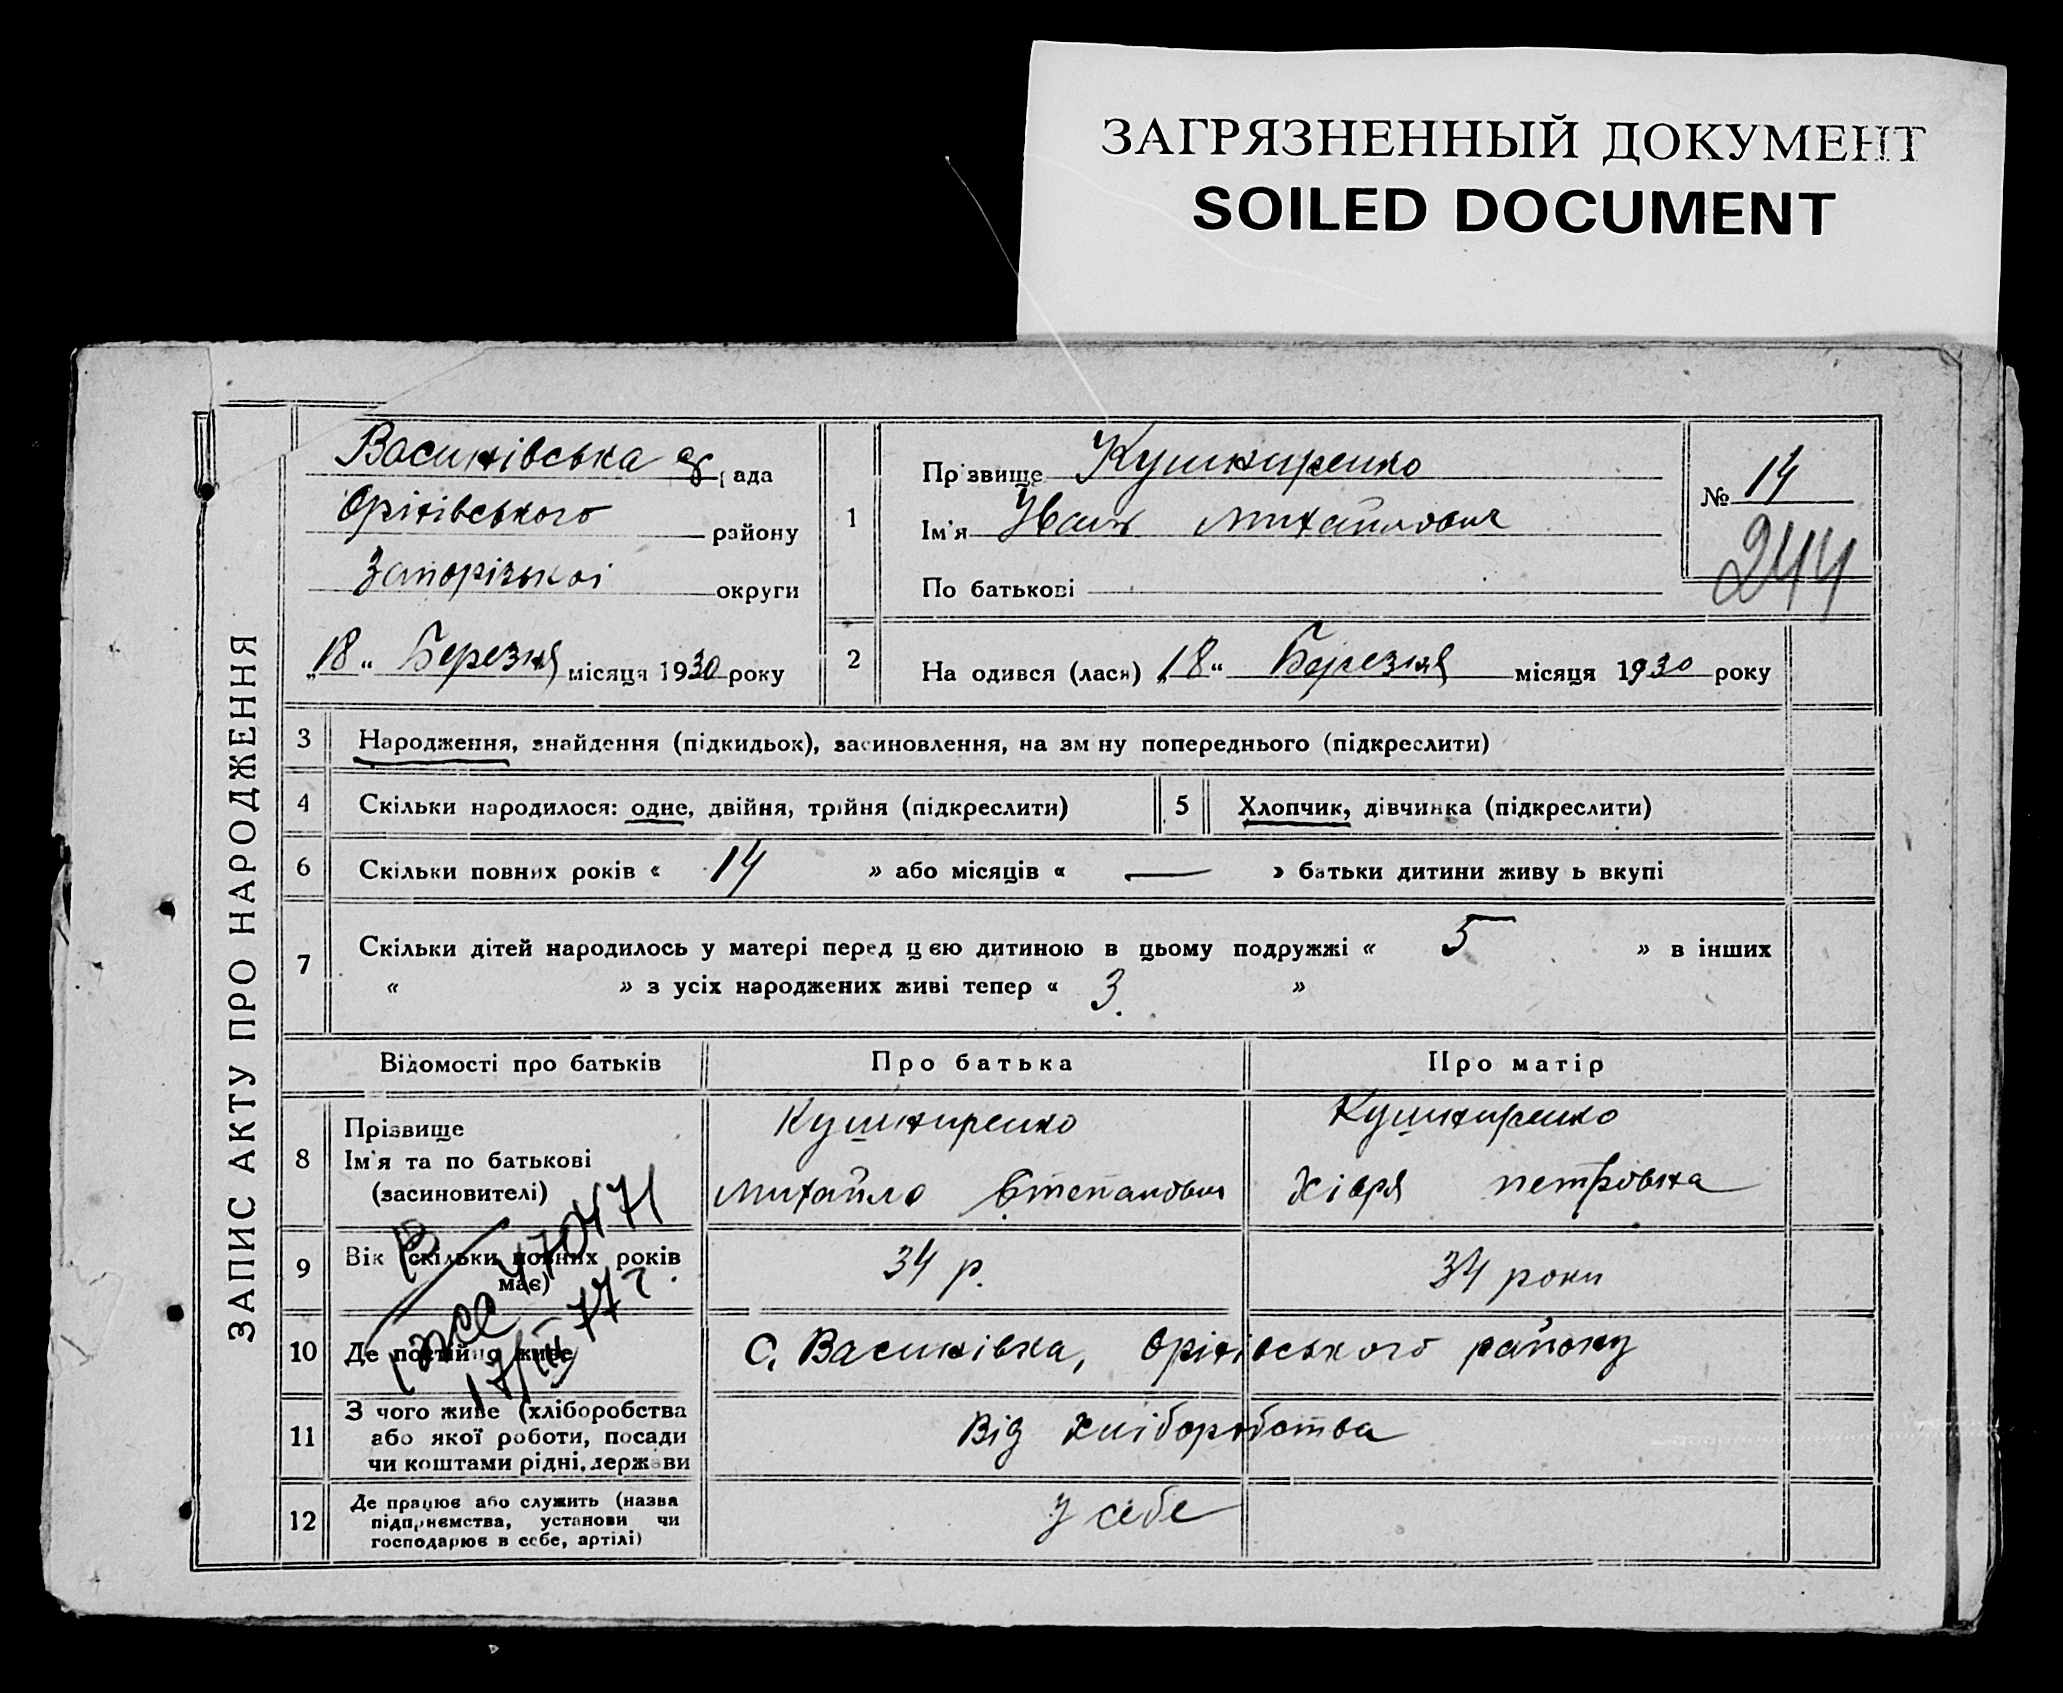 ЗАГРЯЗНЕННЫЙ ДОКУМЕНТ
SOILED DOCUMENT
ЗАПИС АКТУ ПРО НАРОДЖЕННЯ
Васинівська рада
Оріхівського району
Запорізької округи
„18“ Березня місяця 1930 року
1
Прізвище Кушниренко
Ім'я Иван Михайлович
По батькові
№ 14
244
2
На одився (лася) „18“ Березня місяця 1930 року
3 Народження, знайдення (підкидьок), засиновлення, на зм ну попереднього (підкреслити)
4 Скільки народилося: одне, двійня, трійня (підкреслити) 5 Хлопчик, дівчинка (підкреслити)
6 Скільки повних років « 14 » або місяців « — » батьки дитини живу ь вкупі
7 Скільки дітей народилось у матері перед цією дитиною в цьому подружжі « 5 » в інших
« » з усіх народжених живі тепер « 3. »
Відомості про батьків Про батька Про матір
8 Прізвище
Ім'я та по батькові
(засиновителі)
Кушниренко
Михайло Степанович
Кушниренко
Хівря петровна
9 Вік (скільки повних років
має)
34 р. 34 роки
10 Де постійно живе С. Васинівка, Оріхівського району
17/III 77 г.
11 З чого живе (хліборобства
або якої роботи, посади
чи коштами рідні, держави
Від хліборобства
12 Де працює або служить (назва
підприємства, установи чи
господарює в себе, артілі)
У себе